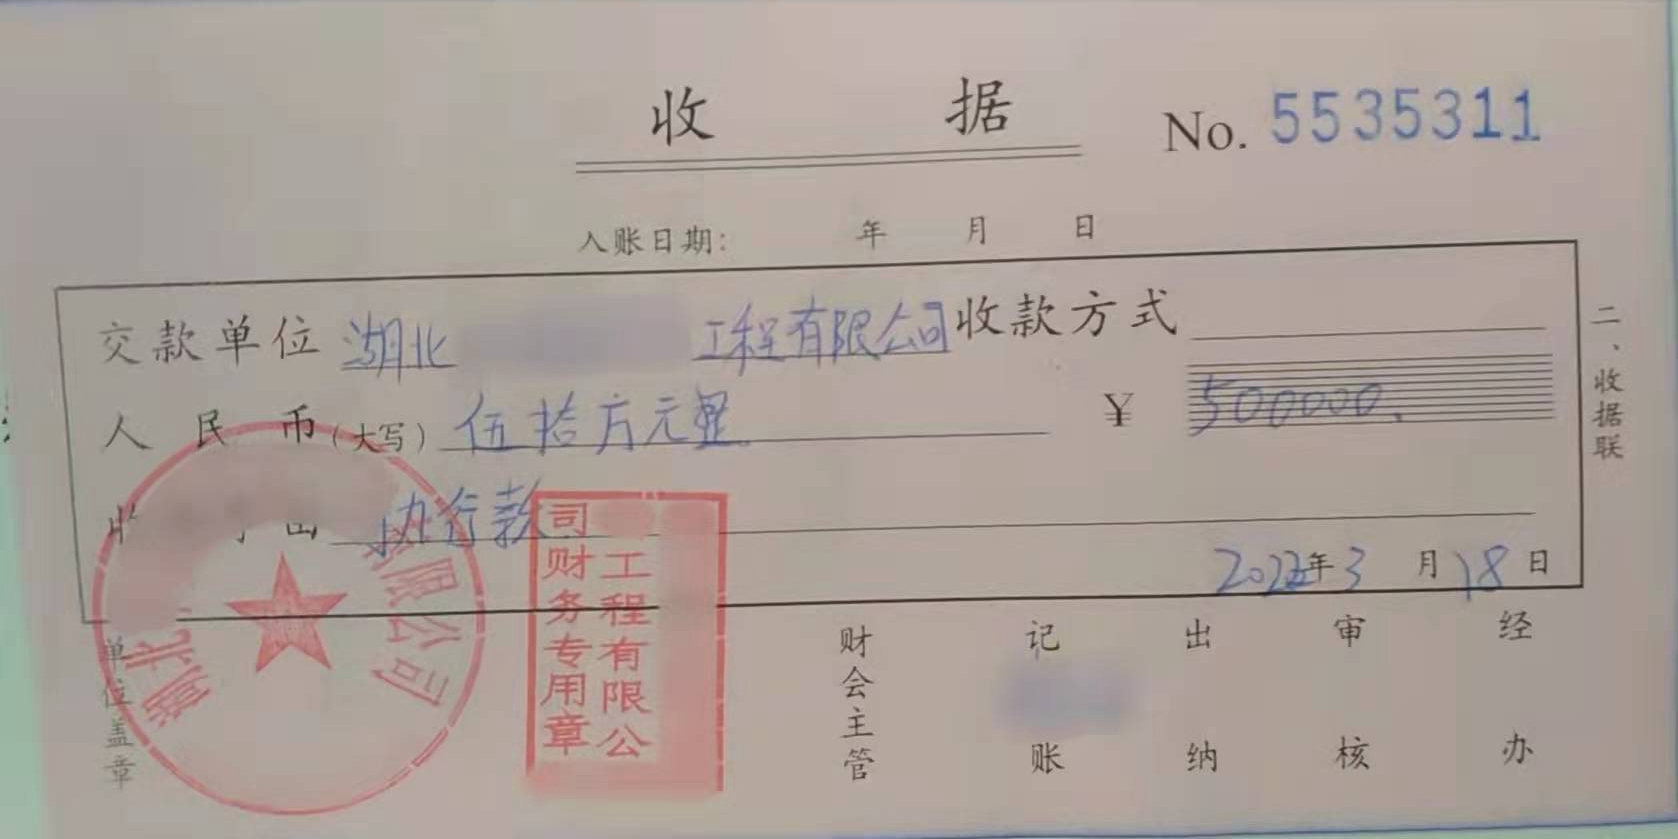 收 据 No. 5535311
入账日期： 年 月 日
交款单位 湖北 工程有限公司 收款方式
人民币（大写） 伍拾万元整 ¥ 500000.
收 由 执行款
2022年3月18日
二、收据联
单位盖章
财会主管 记账 出纳 审核 经办
湖北 有限公司
工程有限公司财务专用章